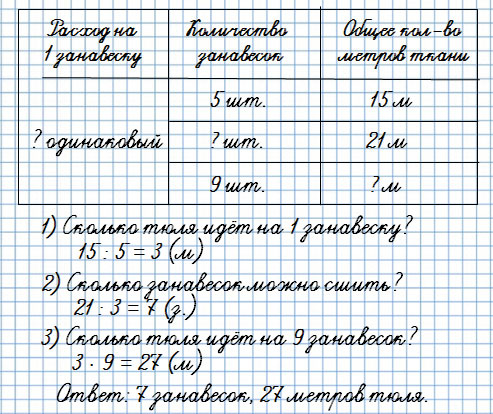 Расход на Количество Общее кол-во
1 занавеску занавесок метров ткани
5 шт. 15 м
? одинаковый ? шт. 21 м
9 шт. ? м
1) Сколько тюля идёт на 1 занавеску?
15 : 5 = 3 (м)
2) Сколько занавесок можно сшить?
21 : 3 = 7 (з.)
3) Сколько тюля идёт на 9 занавесок?
3 · 9 = 27 (м)
Ответ: 7 занавесок, 27 метров тюля.